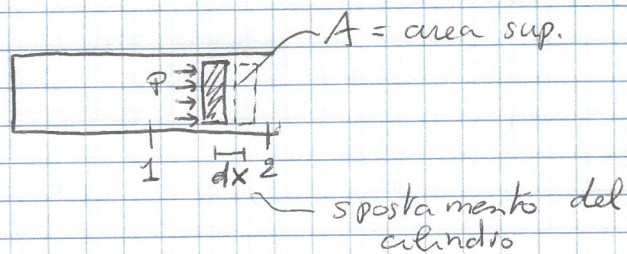 A = area sup.
P
1 dx 2
spostamento del
cilindro